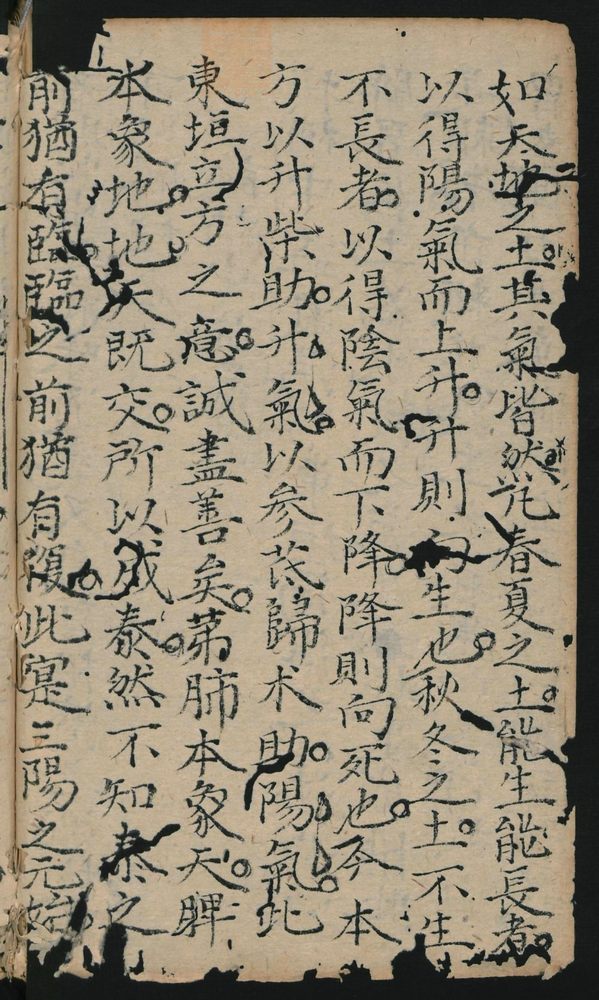 如天地之土。其氣皆然。凡春夏之土。能生能長者。
以得陽氣而上升。升則向生也。秋冬之土。不生
不長者。以得陰氣而下降。降則向死也。今本
方以升柴助。升氣。以参芪歸术助。陽氣。此
東垣立方之意。誠盡善矣。苐肺本象天。脾
本象地。地天既交。所以成泰。然不知泰之
前猶有臨。臨之前猶有復。此寔三陽之元始。